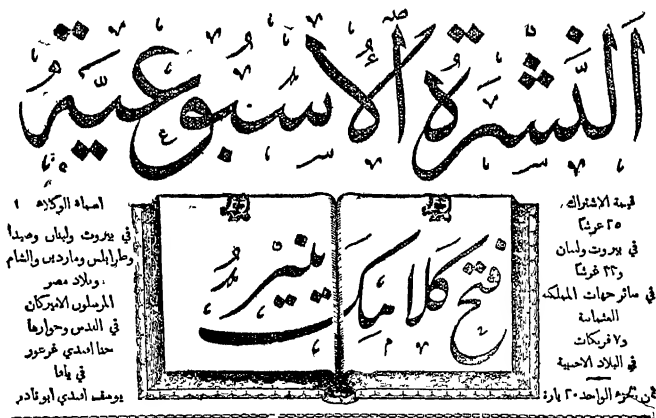 النشرة الاسبوعية
قيمة الاشتراك
٢٥ غرشًا
في بيروت ولبنان
و٣٢ غرشًا
في سائر جهات المملكة
العثمانية
و٧ فرنكات
في البلاد الاجنبية
ثمن الجزء الواحد ٢٠ بارة
فتح كلامك ينير
اسماء الوكلاء
في بيروت ولبنان وصيدا
وطرابلس وماردين والشام
وبلاد مصر
المرسلون الاميركان
في القدس وجوارها
حنا افندي
في يافا
يوسف افندي ابو نادر